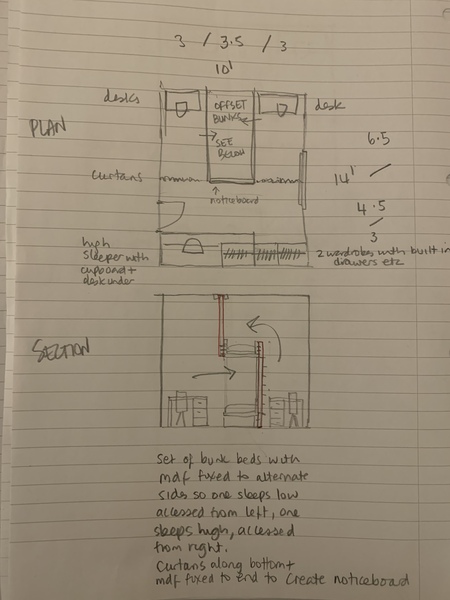 3 / 3.5 / 3
10'
desks
OFFSET
BUNKS
desk
PLAN
SEE
BELOW
6.5
curtains
14'
noticeboard
4.5
3
high
sleeper with
cupboard +
desk under
2 wardrobes with built in
drawers etc
SECTION
Set of bunk beds with
mdf fixed to alternate
sides so one sleeps low
accessed from left, one
sleeps high, accessed
from right.
Curtains along bottom +
mdf fixed to end to create noticeboard